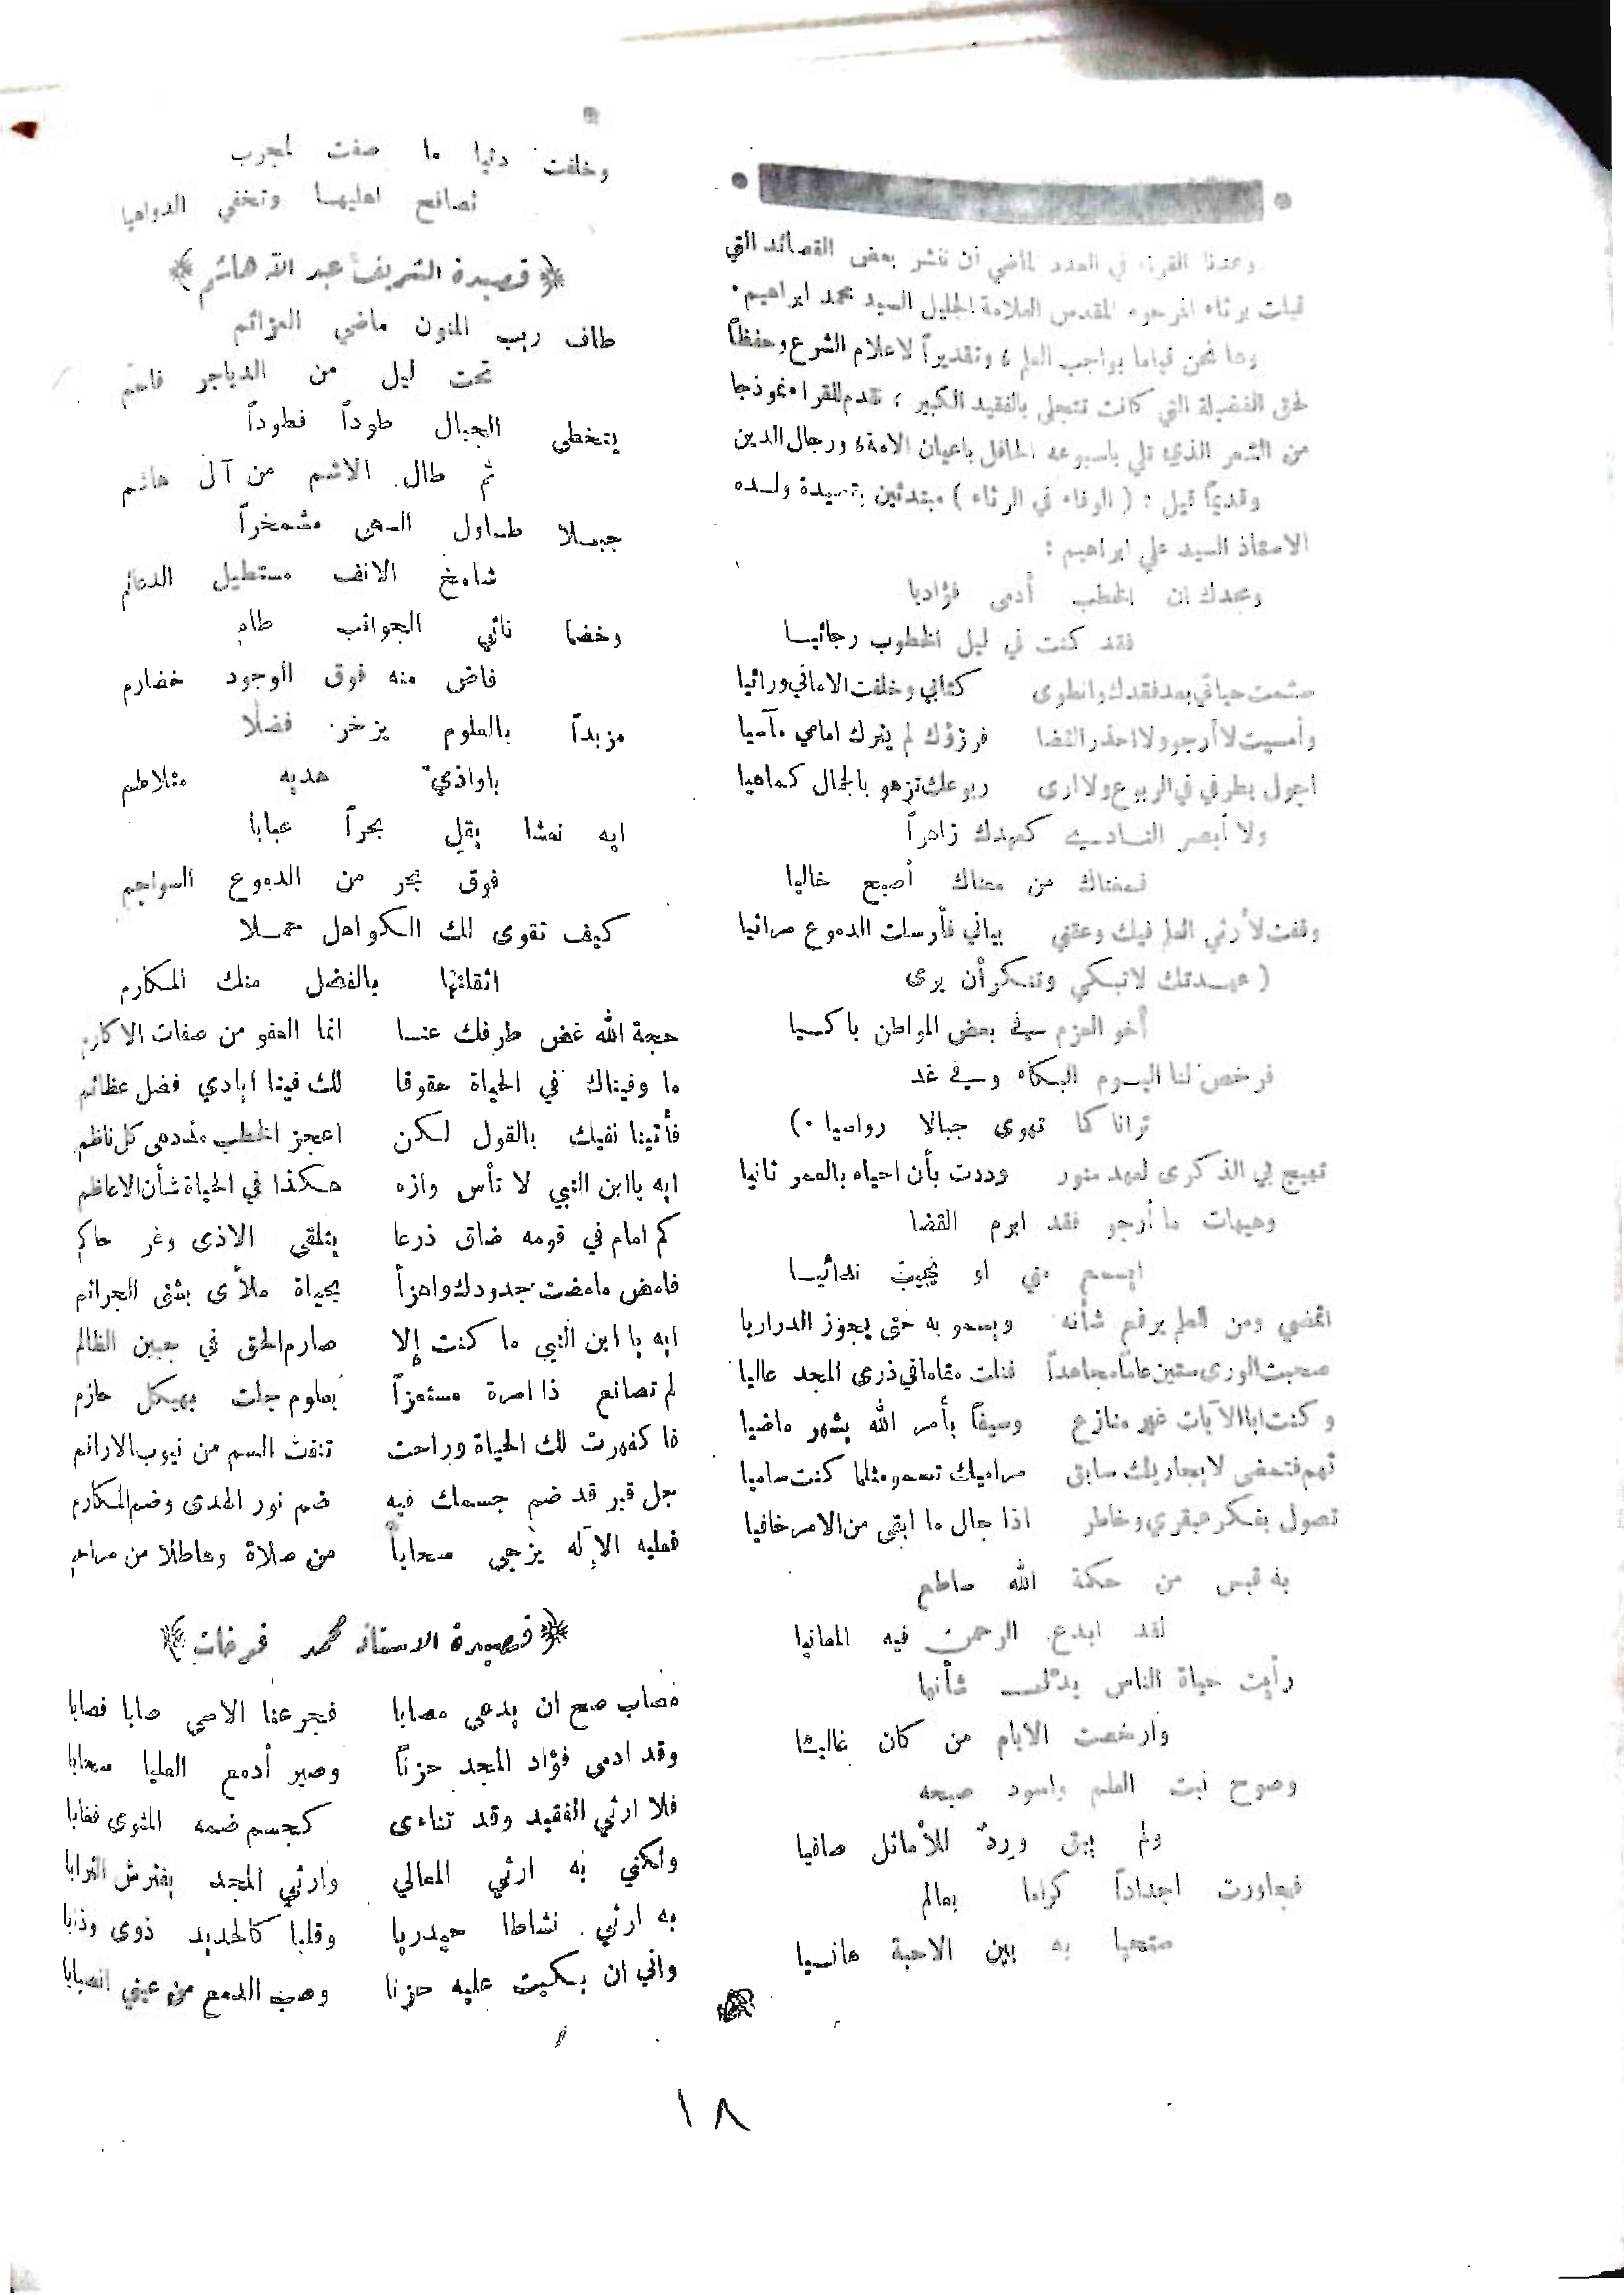 وعدنا القراء في العدد الماضي ان ننشر بعض القصائد التي
قيلت برثاء المرحوم المقدس العلامة الجليل السيد محمد ابراهيم .
وها نحن قياما بواجب العلم ، وتقديراً لاعلام الشرع وحفظاً
لحق الفضيلة التي كانت تتجلى بالفقيد الكبير ، نقدم للقراء نموذجا
من الشعر الذي تلي باسبوعه الحافل باعيان الامة ، ورجال الدين
وقديماً قيل : ( الوفاء في الرثاء ) مبتدئين بقصيدة ولده
الاستاذ السيد علي ابراهيم :
ومجدك ان الخطب أدمى فؤاديا
فقد كنت في ليل الخطوب رجائيا
سئمت حياتي بعد فقدك وانطوى كتابي وخلفت الاماني ورائيا
وأمسيت لا أرجو ولا احذر القضا فرزؤك لم يترك امامي مآسيا
اجول بطرفي في الربوع ولا ارى ربوعك تزهو بالجمال كماهيا
ولا أبصر النادي كعهدك زاهراً
فمغناك من معناك أصبح خاليا
وقفت لأرثي العلم فيك وعقني بياني فأرسلت الدموع مراثيا
( عهدتك لا تبكي وتنكر أن يرى
أخو العزم في بعض المواطن باكيا
فرخص لنا اليوم البكاء وفي غد
ترانا كما تهوى جبالا رواسيا . )
تهيج لي الذكرى لعهد منور وددت بأن احياه بالعمر ثانيا
وهيهات ما أرجو فقد ابرم القضا
ايسمع مني او يجيب ندائيا
اتمضي ومن للعلم يرفع شأنه ويسمو به حتى يجوز الدراريا
صحبت الورى ستين عاماً مجاهداً فنلت مقاما في ذرى المجد عاليا
وكنت ابا الآيات غير منازع وسيفاً بأمر الله يشهر ماضيا
تهم فتمضى لا يجاريك سابق مراميك تسمو مثلما كنت ساميا
تصول بفكر عبقري وخاطر اذا جال ما ابقى من الامر خافيا
به قبس من حكمة الله ساطع
لقد ابدع الرحمن فيه المعانيا
رأيت حياة الناس بدلت شأنها
وارخصت الايام من كان غاليا
وصوح نبت العلم واسود صبحه
ولم يبق ورد للأماثل صافيا
فجاورت اجداداً كراما بعالم
ستحيا به بين الاحبة هانيا
وخلفت دنيا ما صفت لمجرب
تصافح اهليها وتخفي الدواهيا
﴿ قصيدة الشريف عبد الله هاشم ﴾
طاف ريب المنون ماضي العزائم
تحت ليل من الدياجر فاحم
يتخطى الجبال طوداً فطوداً
ثم طال الاشم من آل هاشم
جبلا طاول السهى مشمخراً
شامخ الانف مستطيل الدعائم
وخضما نائي الجوانب طام
فاض منه فوق الوجود خضارم
مزبداً بالعلوم يزخر فضلا
باواذي هديه متلاطم
ايه نعشا يقل بحراً عبابا
فوق بحر من الدموع السواجم
كيف تقوى لك الكواهل حملا
اثقلتها بالفضل منك المكارم
حجة الله غض طرفك عنا انما العفو من صفات الاكارم
ما وفيناك في الحياة حقوقا لك فينا ايادي فضل عظائم
فأتينا نفيك بالقول لكن اعجز الخطب كل ناظم
ايه يا ابن النبي لا تأس وازه هكذا في الحياة شأن الاعاظم
كم امام في قومه ضاق ذرعا يتلقى الاذى وغر حاكم
فامض مامضت جدودك واهزأ بحياة ملأى بشتى الجرائم
ايه يا ابن النبي ما كنت إلا صارم الحق في جبين الظالم
لم تصانع ذا امرة مستعزاً بعلوم جلت بهيكل حازم
فا كفهرت لك الحياة وراحت تنفث السم من نيوب الاراقم
جل قبر قد ضم جسمك فيه ضم نور الهدى وضم المكارم
فعليه الإله يزجي سحاباً من صلاة وهاطلا من مراحم
﴿ قصيدة الاستاذ محمد فرحات ﴾
مصاب صح ان يدعى مصابا فجرعنا الاسى صابا فصابا
وقد ادمى فؤاد المجد حزناً وصير أدمع العليا سحابا
فلا ارثي الفقيد وقد تناءى كجسم ضمه المثوى فغابا
ولكني به ارثي المعالي وارثي المجد يفترش الترابا
به ارثي نشاطا حيدريا وقلبا كالحديد ذوى وذابا
واني ان بكيت عليه حزنا وصب الدمع من عيني انصبابا
١٨